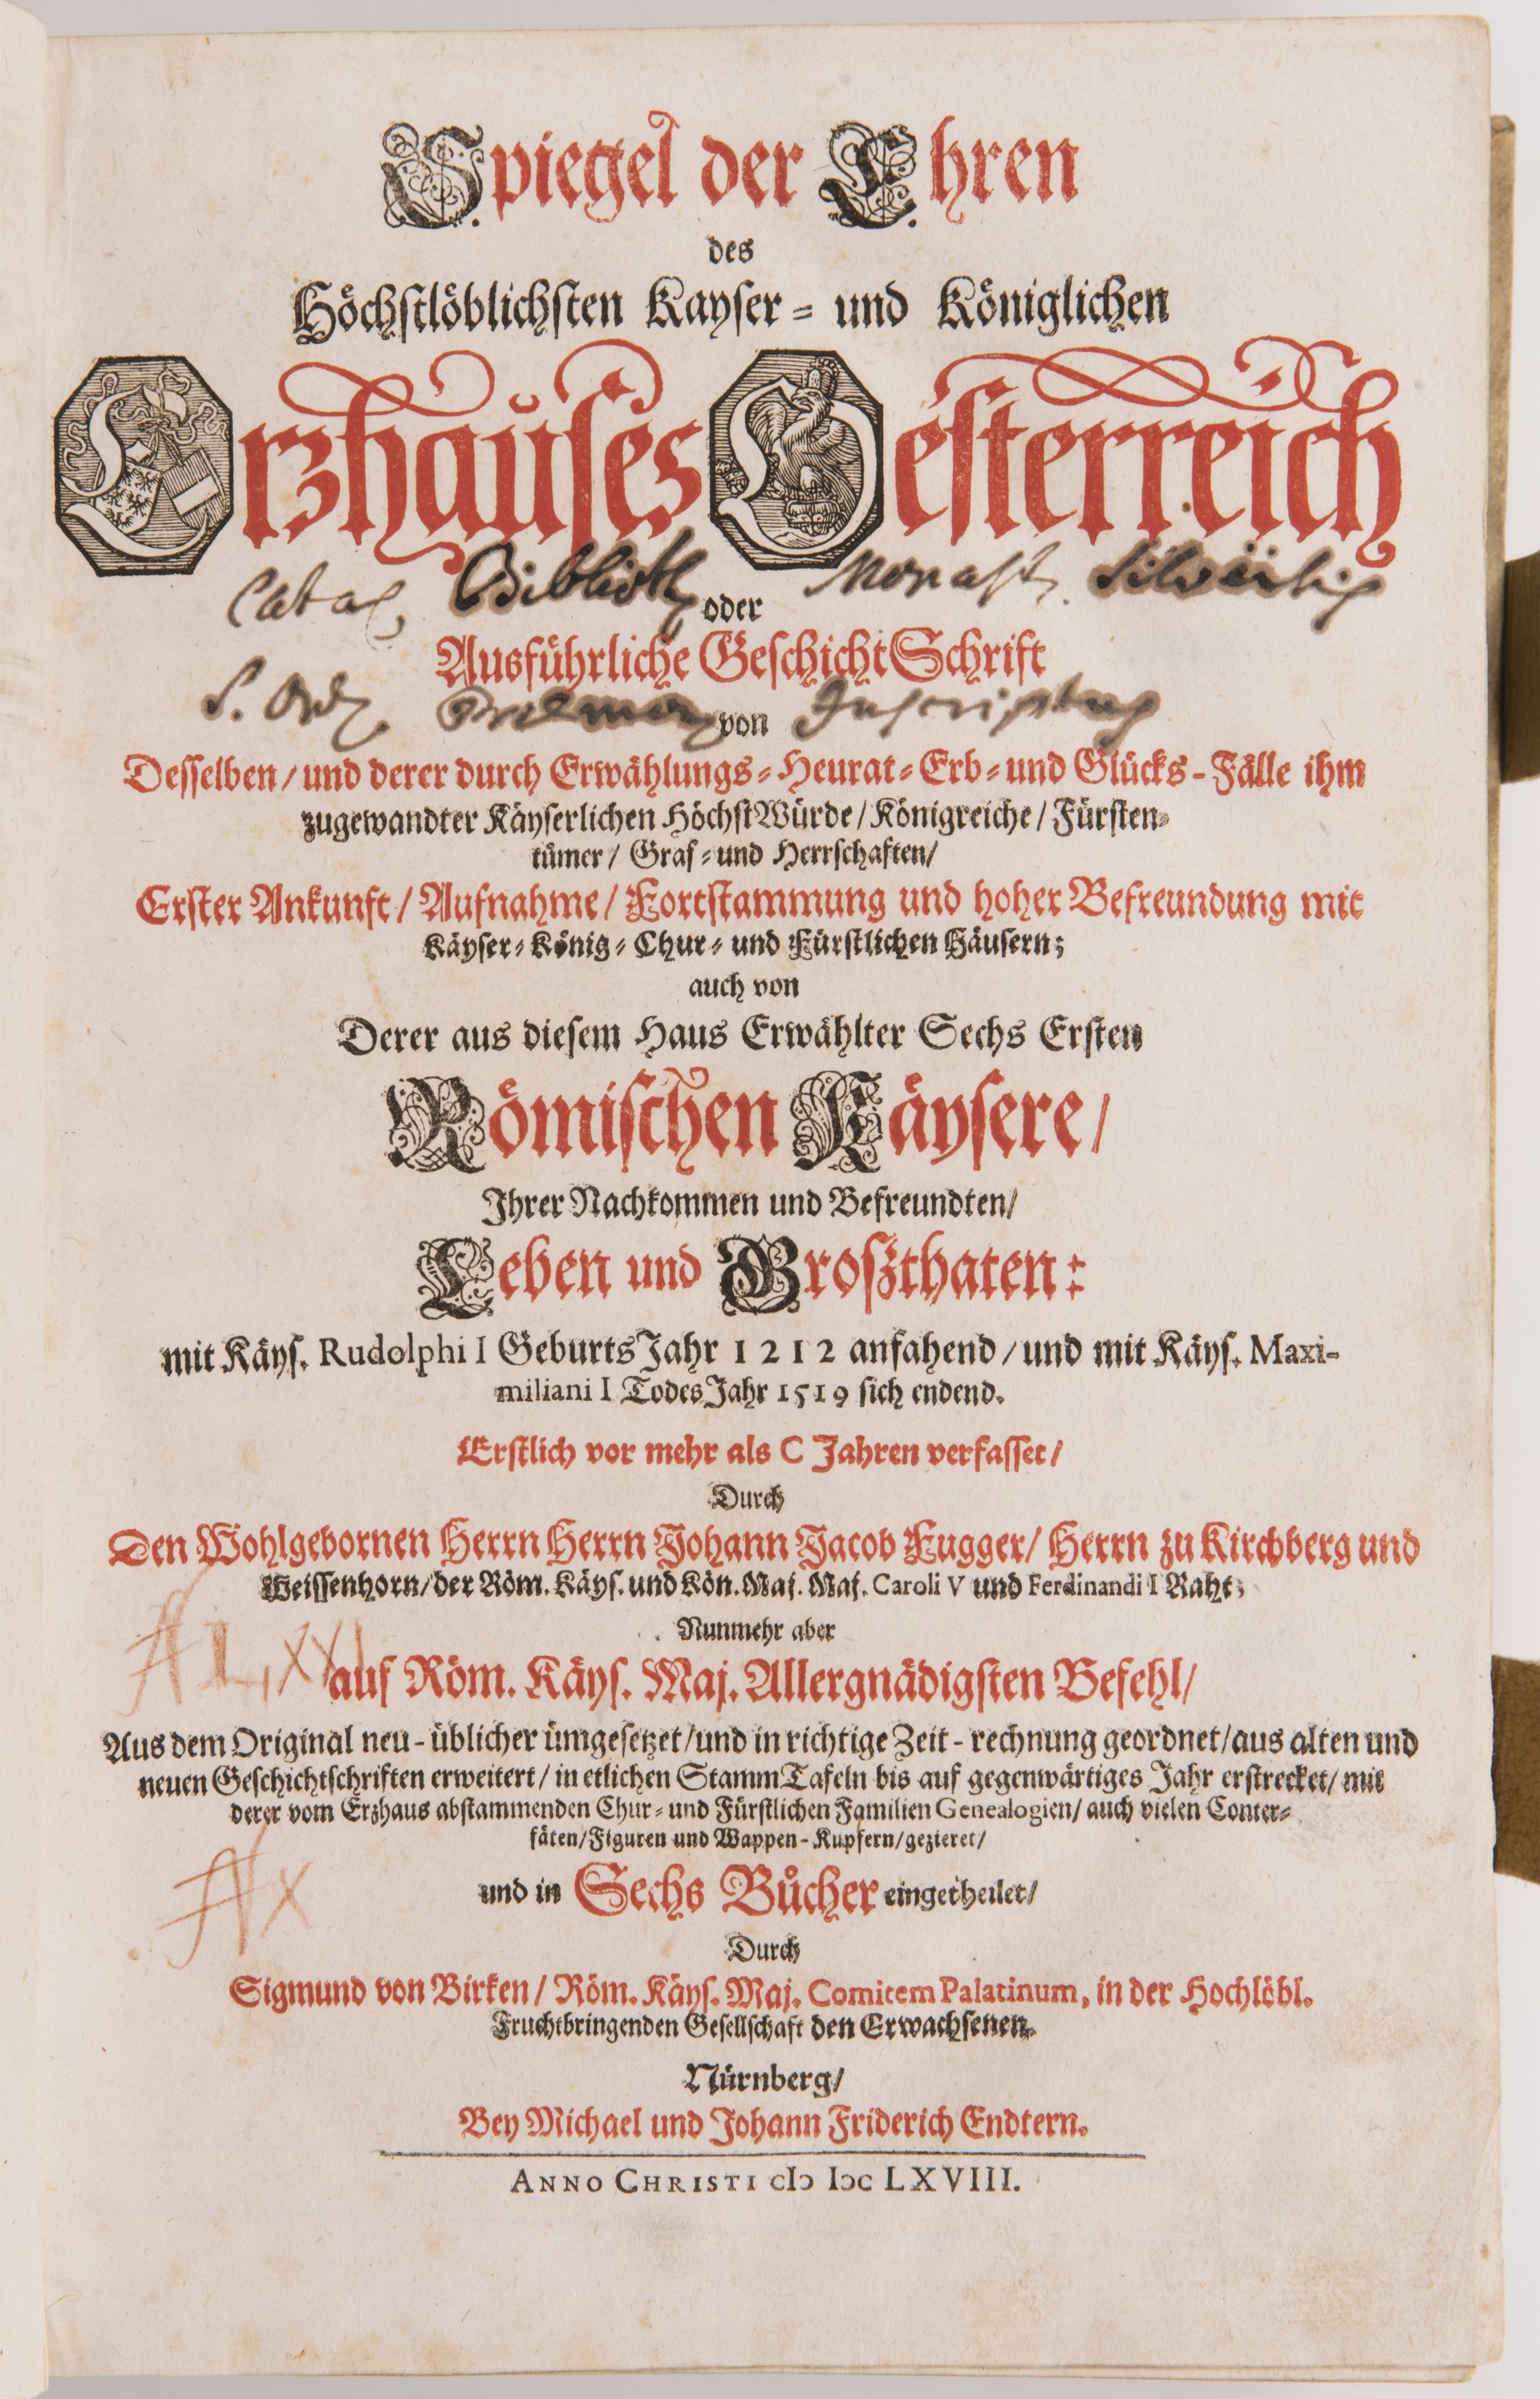 Spiegel der Ehren
des
Höchstlöblichsten Kayser- und Königlichen
Erzhauses Oesterreich
Catal. Biblioth. Monast.
oder
Ausführliche GeschichtSchrift
S. Ord.
von
Desselben/ und derer durch Erwählungs-Heurat-Erb-und Glücks-Fälle ihm
zugewandter Käyserlichen HöchstWürde/ Königreiche/ Fürsten-
tümer/ Graf-und Herrschaften/
Erster Ankunft/ Aufnahme/ Fortstammung und hoher Befreundung mit
Käyser-König-Chur-und Fürstlichen Häusern;
auch von
Derer aus diesem Haus Erwählter Sechs Ersten
Römischen Käysere/
Ihrer Nachkommen und Befreundten/
Leben und Groszthaten:
mit Käys. Rudolphi I GeburtsJahr 1212 anfahend/ und mit Käys. Maxi-
miliani I TodesJahr 1519 sich endend.
Erstlich vor mehr als C Jahren verfasset/
Durch
Den Wohlgebornen Herrn Herrn Johann Jacob Fugger/ Herrn zu Kirchberg und
Weissenhorn/ der Röm. Käys. und Kön. Maj. Maj. Caroli V und Ferdinandi I Raht;
Nunmehr aber
auf Röm. Käys. Maj. Allergnädigsten Befehl/
Aus dem Original neu-üblicher ümgesetzet/ und in richtige Zeit-rechnung geordnet/ aus alten und
neuen Geschichtschriften erweitert/ in etlichen StammTafeln bis auf gegenwärtiges Jahr erstrecket/ mit
derer vom Erzhaus abstammenden Chur-und Fürstlichen Familien Genealogien/ auch vielen Conter-
fäten/ Figuren und Wappen-Kupfern/ gezieret/
und in Sechs Bücher eingetheilet/
Durch
Sigmund von Birken/ Röm. Käys. Maj. Comitem Palatinum, in der Hochlöbl.
Fruchtbringenden Gesellschaft den Erwachsenen.
Nürnberg/
Bey Michael und Johann Friderich Endtern.
ANNO CHRISTI cIↄ Iↄc LXVIII.